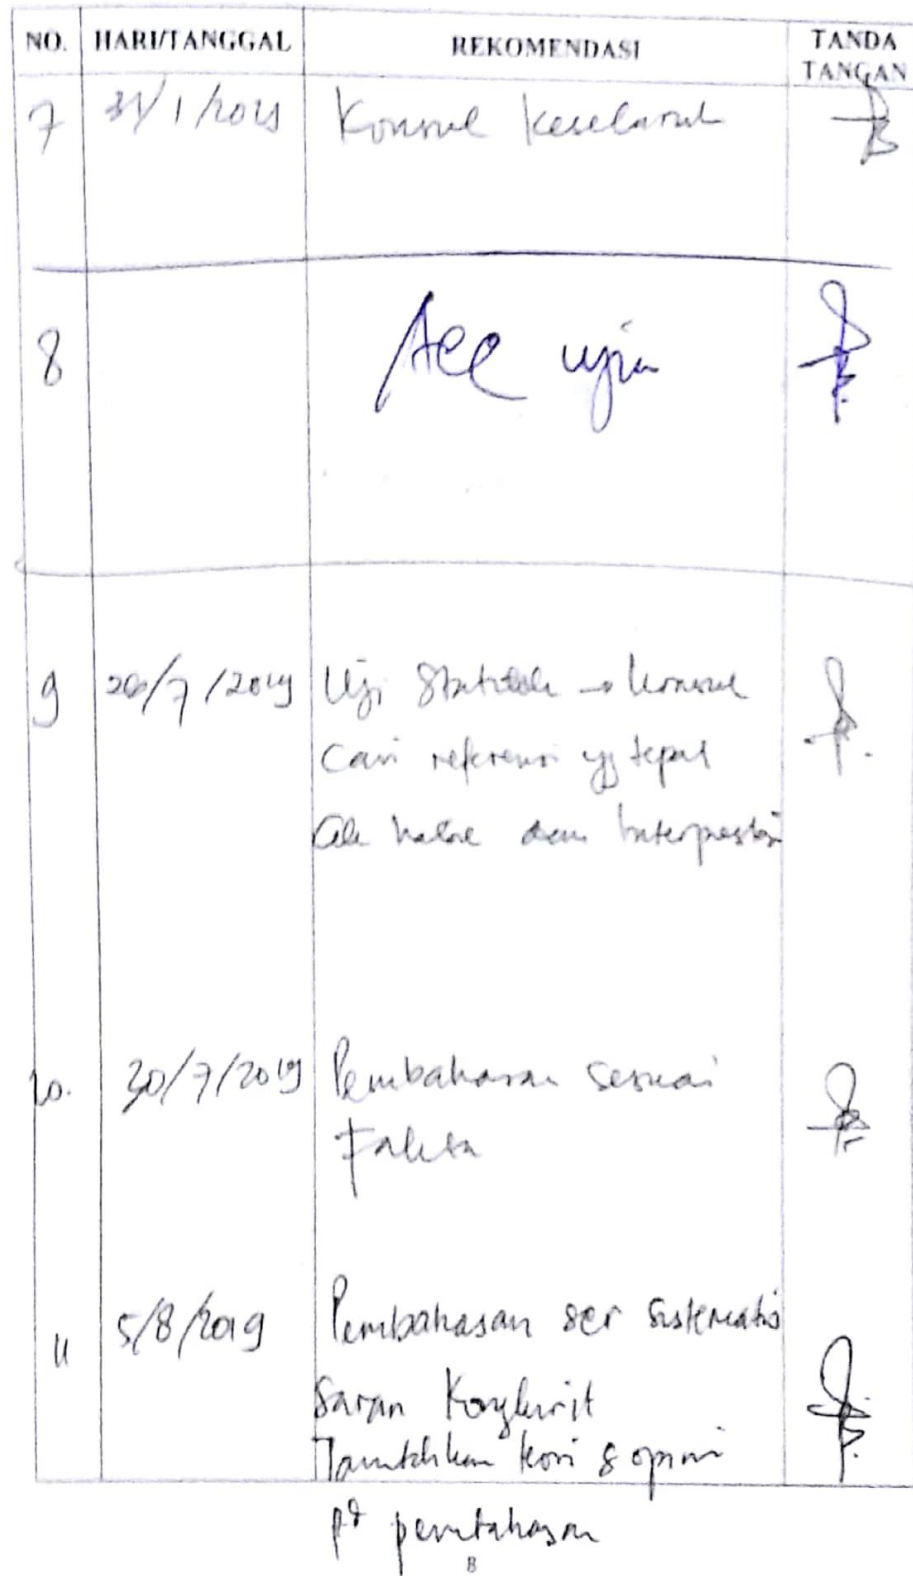 NO. HARI/TANGGAL REKOMENDASI TANDA TANGAN
7 31/1/2019 Konsul Keseluruh
8 Acc ujian
9 26/7/2019 Uji Statistik → konsul
Cari referensi yg tepat
Cek dan Interprestasi
10. 30/7/2019 Pembahasan sesuai
Fakta
11 5/8/2019 Pembahasan ser sistematis
Saran Kongkrit
Tambahkan teori & opini
pd pembahasan
8